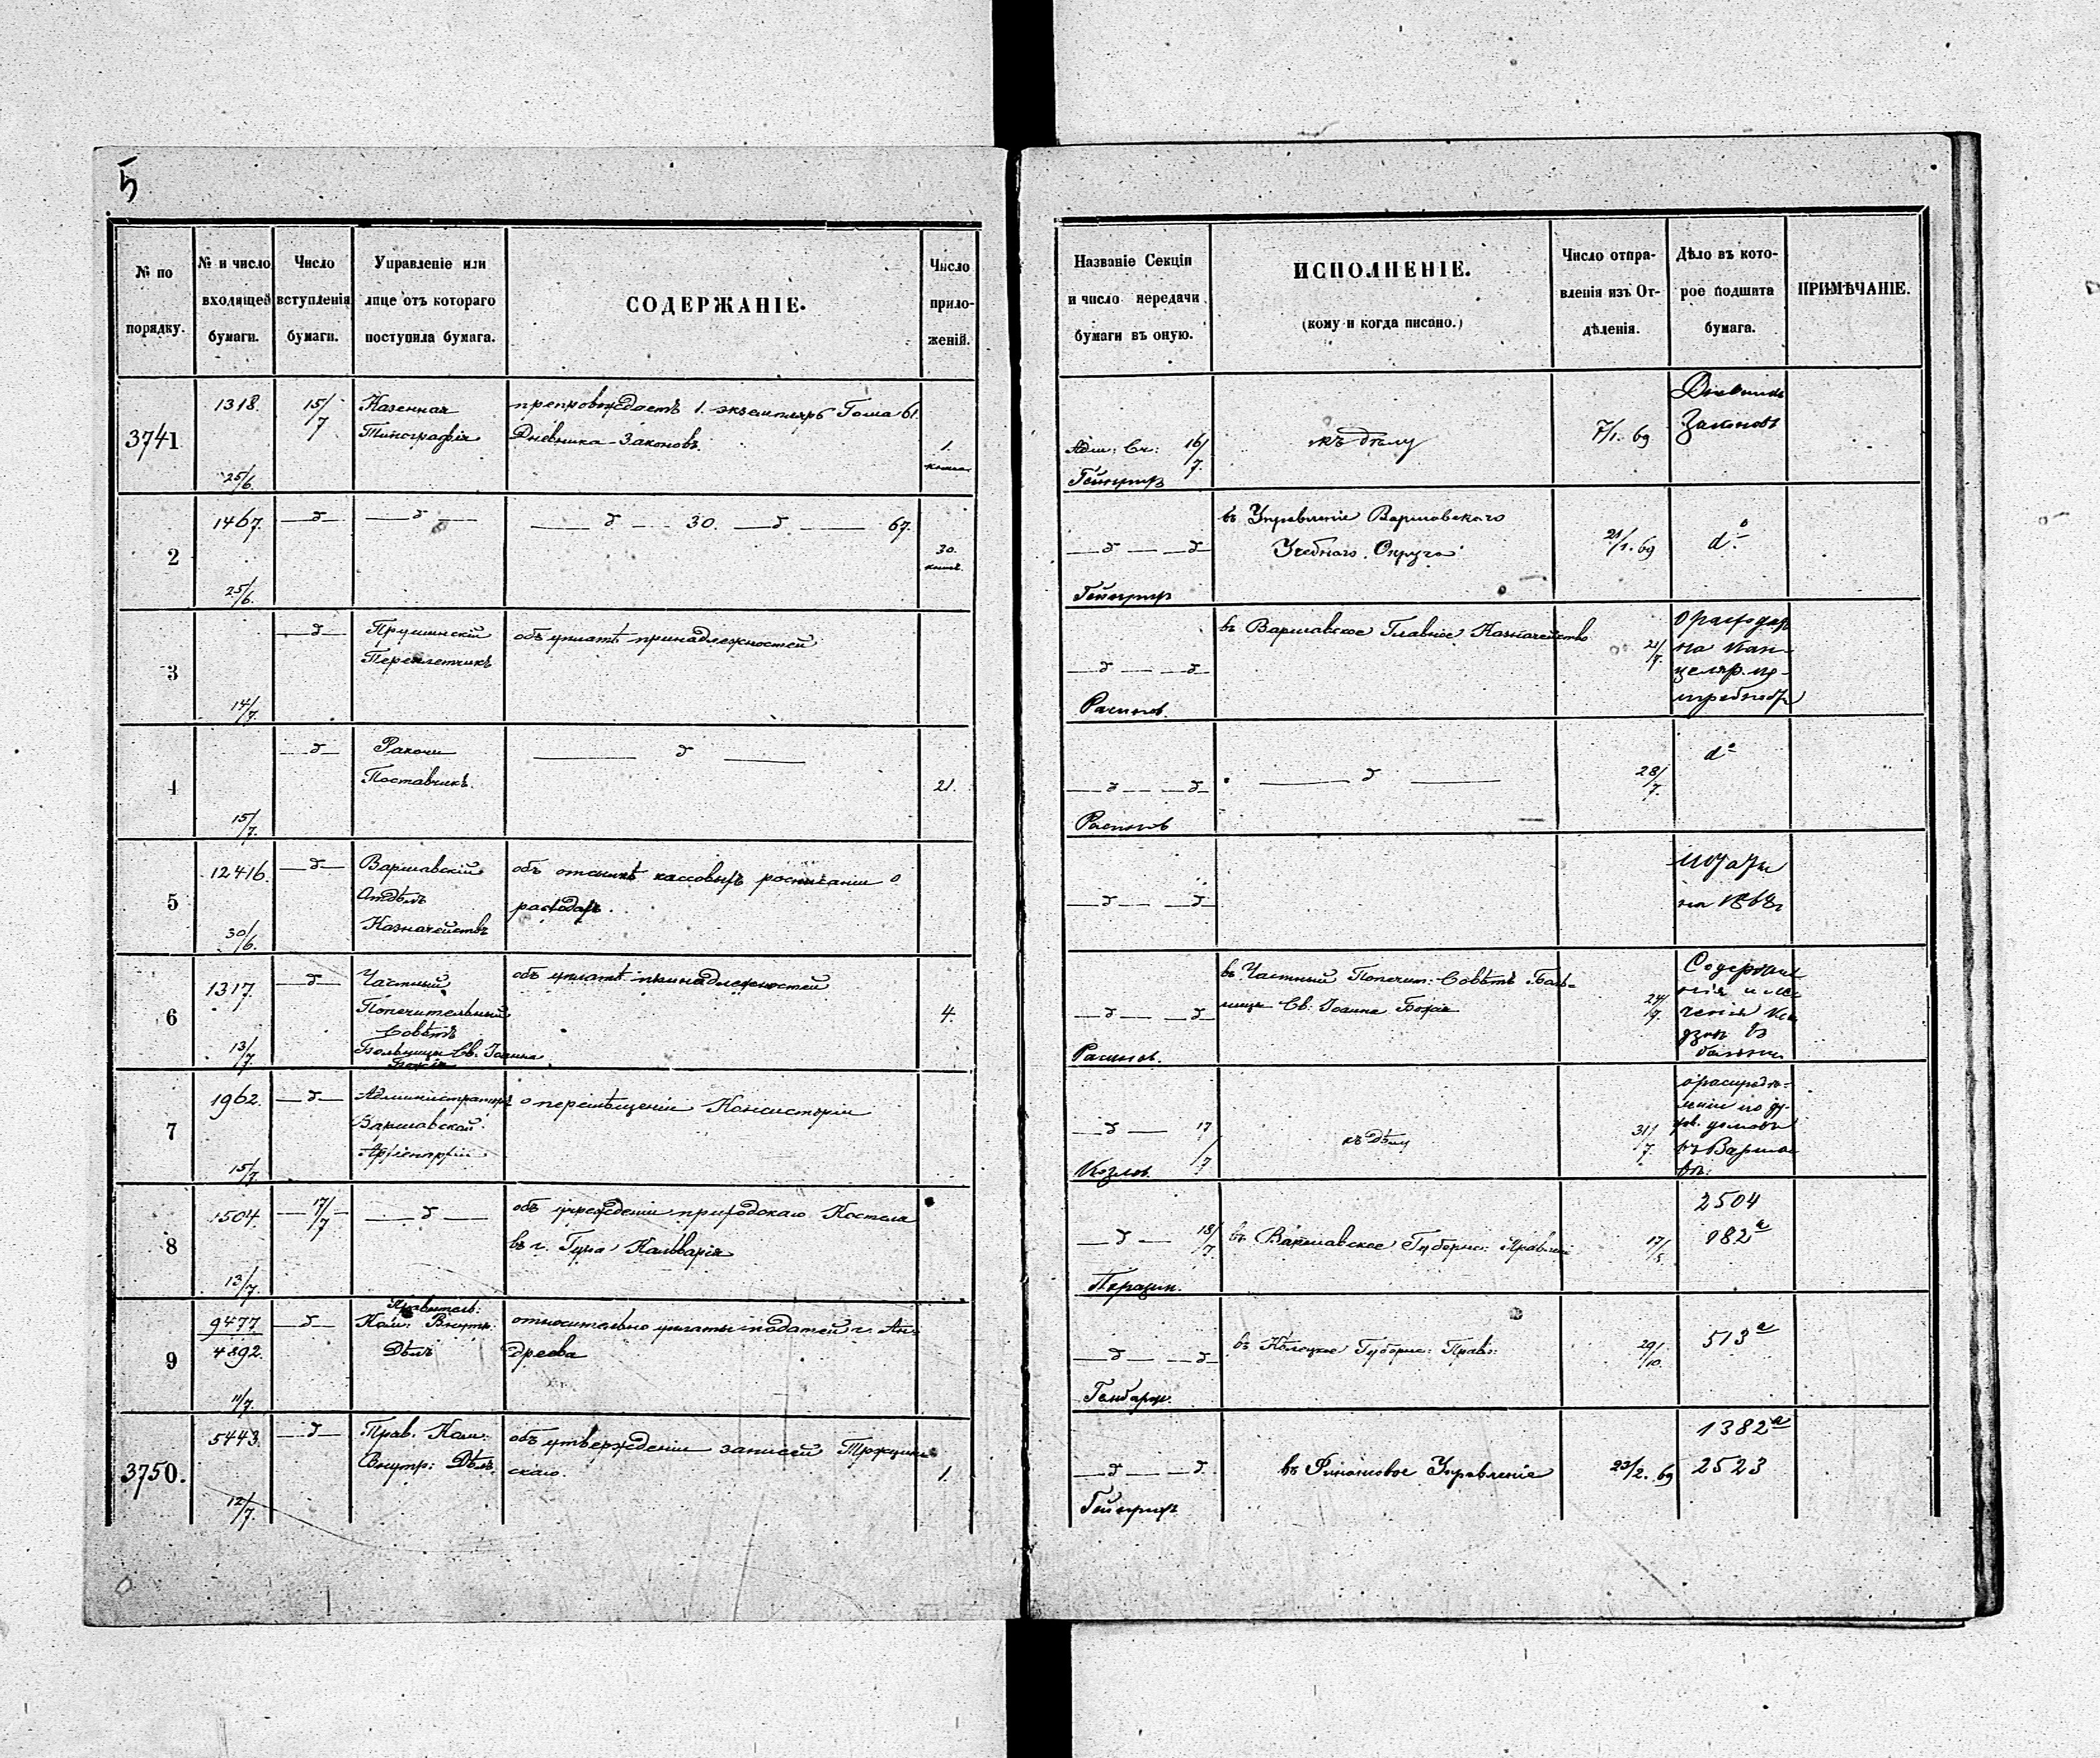 5
№ по порядку.
№ и число входящей бумаги.
Число вступленія бумаги.
Управленіе или лице отъ котораго поступила бумага.
СОДЕРЖАНІЕ.
Число приложеній.
Названіе Секціи и число передачи бумаги въ оную.
ИСПОЛНЕНІЕ.
(кому и когда писано.)
Число отправленія изъ Отдѣленія.
Дѣло въ которое подшита бумага.
ПРИМѢЧАНІЕ.
3741
1318.
25/6.
15/7
Казенная
Типографія
препровождаетъ 1. экземпляръ Тома 61.
Дневника Законовъ.
1.
Адм: Сч: 16/7.
къ дѣлу
7/1. 69
Дневникъ
Законовъ
2
1467.
25/6.
30.
67.
30.
въ Управленіе Варшавскаго
Учебнаго Округа
21/1. 69
dº
3
14/7.
Переплетчикъ
объ уплатѣ принадлежностей
въ Варшавское Главное Казначейство
21/7.
о расходахъ
на кан-
целяр. по-
4
15/7.
Поставчикъ.
21.
28/7.
dº
5
12416.
30/6.
Варшавскій
Отдѣлъ
Казначейства
объ отсылкѣ кассовыхъ росписаніи о
расходахъ.
на 1868 г
6
1317.
13/7.
Частный
Попечительный
Совѣтъ
Больницы Св. Іоанна
Божія
объ уплатѣ принадлежностей
4.
въ Частный Попечит: Совѣтъ Боль-
ницы Св. Іоанна Божія
24/7.
7
1962.
15/7.
Администраторъ
Варшавской
Архіепархіи
о перемѣщеніи Консисторіи
17/7
Козлов.
къ дѣлу
31/7.
о распредѣ-
леніи по ду-
хов. домовъ
въ Варша-
вѣ:
8
1504.
13/7.
17/7
объ учрежденіи приходскаго Костела
въ г. Гура Кальварія
18/7.
въ Варшавское Губернс: Правленіе
2504
182ª
9
9477
4892.
11/7.
Правитель:
Ком: Внутр:
Дѣлъ
относительно уплаты податей г. Ан-
дреева
въ Кѣлецкое Губерн: Правл:
29/10.
513ª
3750.
5443.
12/7.
Прав. Ком:
Внутр: Дѣлъ
объ утвержденіи записей
скаго.
1.
въ Финансовое Управленіе
23/2. 69
1382ª
2523